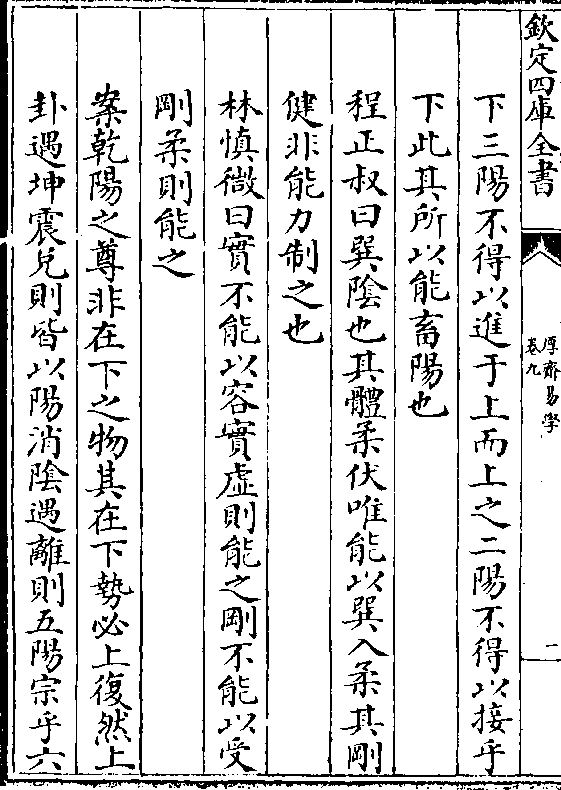 欽定四庫全書
厚齋易學
卷九
二
下三陽不得以進于上而上之二陽不得以接乎
下此其所以能畜陽也
程正叔曰巽陰也其體柔伏唯能以巽入柔其剛
健非能力制之也
林慎微曰實不能以容實虛則能之剛不能以受
剛柔則能之
案乾陽之尊非在下之物其在下勢必上復然上
卦遇坤震兌則皆以陽消陰遇離則五陽宗乎六